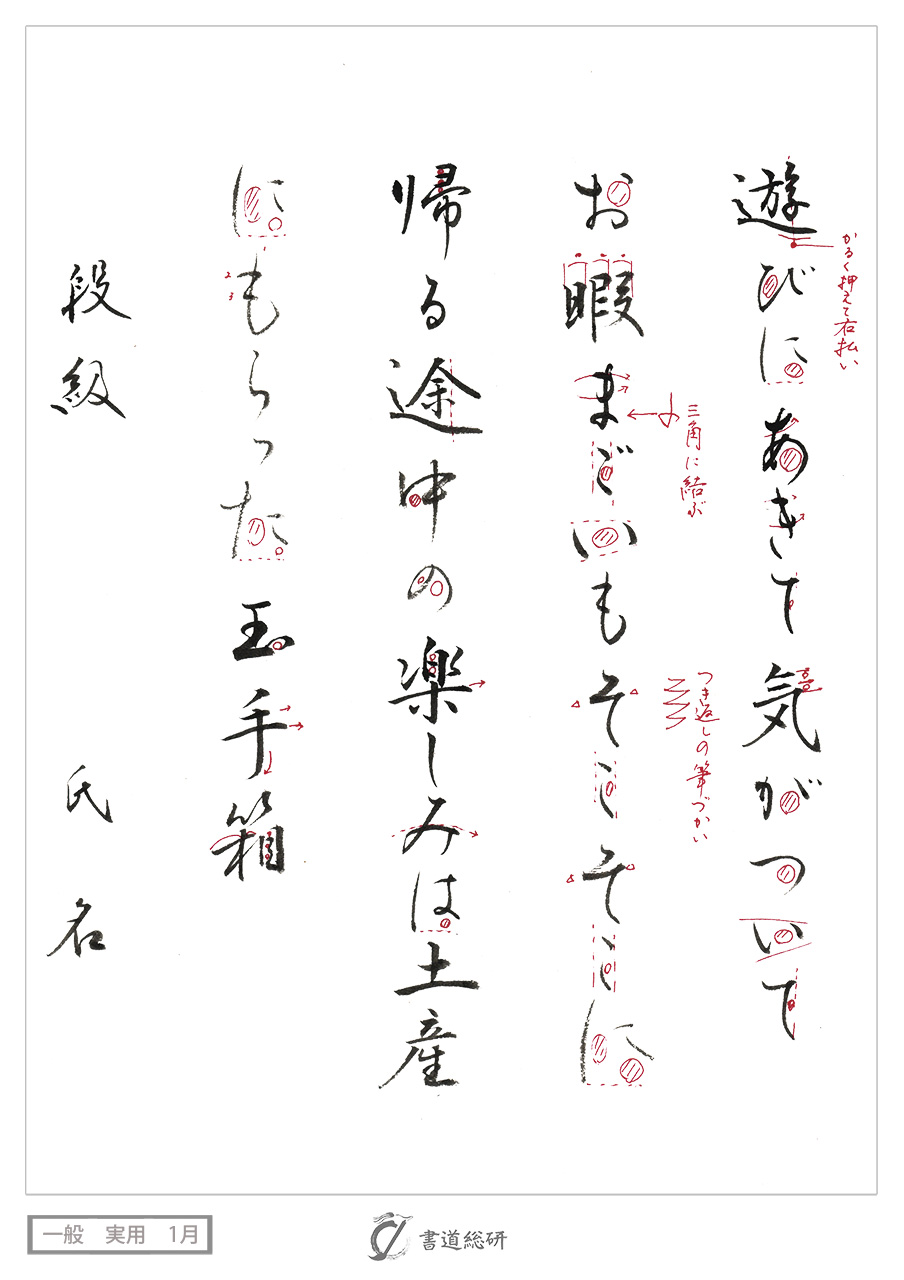 遊びにあきて気がついて
お暇まごいもそこそこに
帰る途中の楽しみは土産
にもらった玉手箱
段級 氏名
かるく押えて右払い
三角に結ぶ
つき返しの筆づかい
1
2
3
一般 実用 1月
書道総研